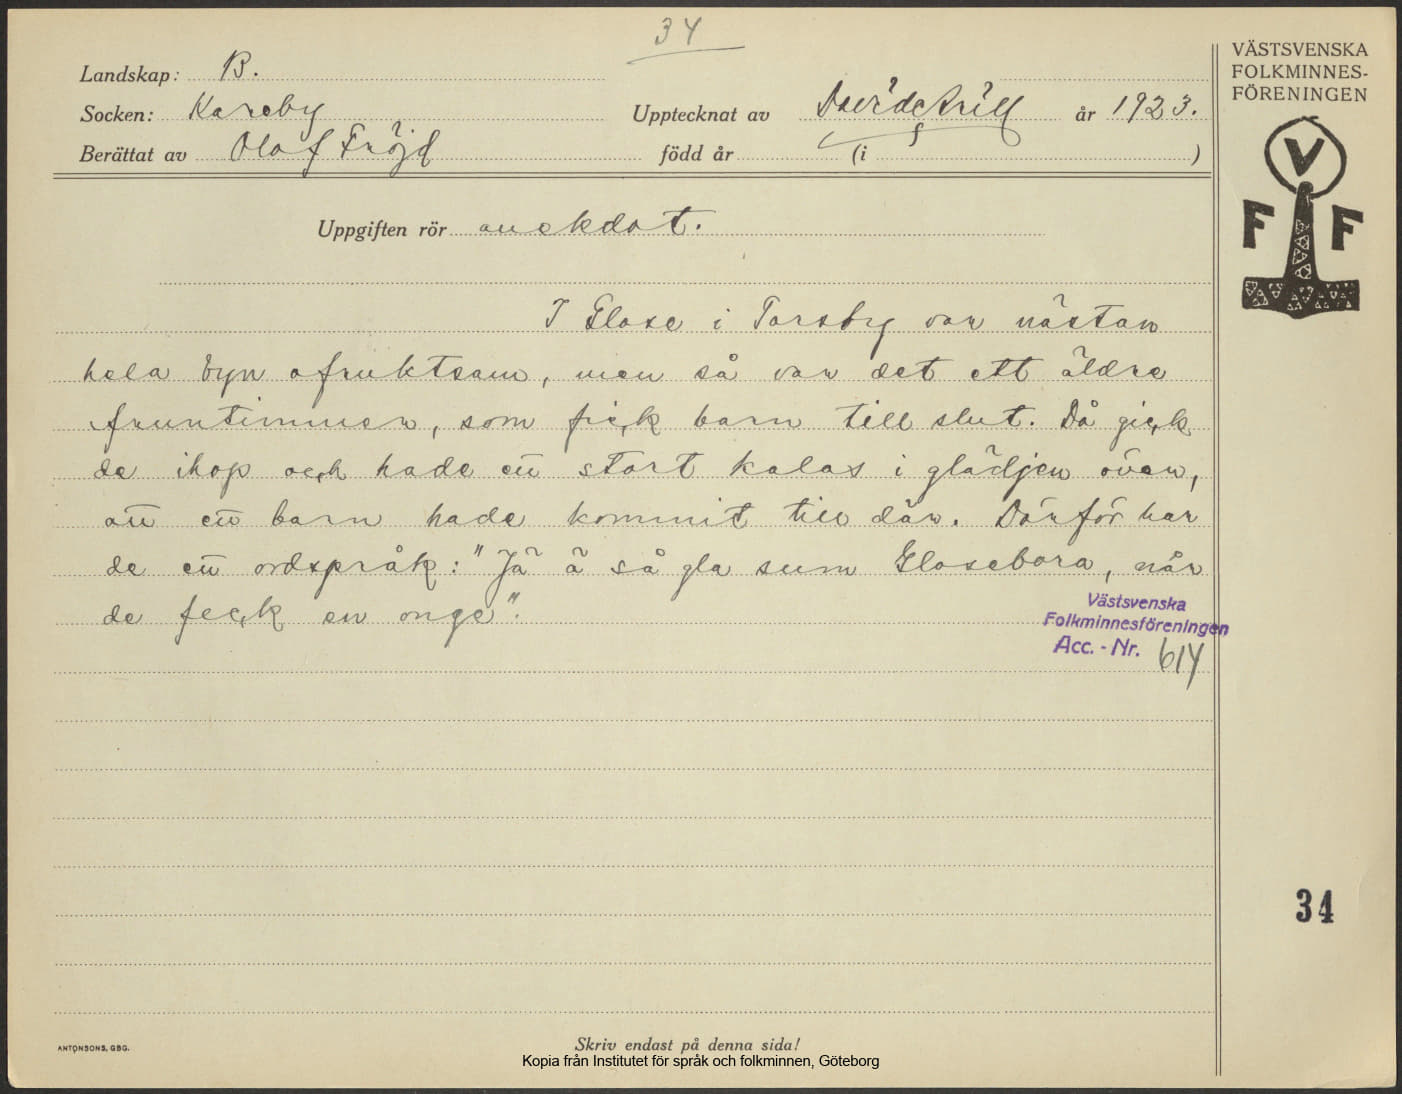 34
Landskap: B.
Socken: Kareby
Upptecknat av David Arill år 1923.
Berättat av Olof Fröjd född år (i )
Uppgiften rör anekdot.
I Glose i Torsby var nästan
hela byn ofruktsam, men så var det ett äldre
fruntimmer, som fick barn till slut. Då gick
de ihop och hade ett stort kalas i glädjen över,
att ett barn hade kommit till där. Därför har
de ett ordspråk: "Jä ä så gla sum Glosebora, når
de feck en onge".
Västsvenska
Folkminnesföreningen
Acc. - Nr. 614
VÄSTSVENSKA
FOLKMINNES-
FÖRENINGEN
V
F F
34
ANTONSONS, GBG.
Skriv endast på denna sida!
Kopia från Institutet för språk och folkminnen, Göteborg